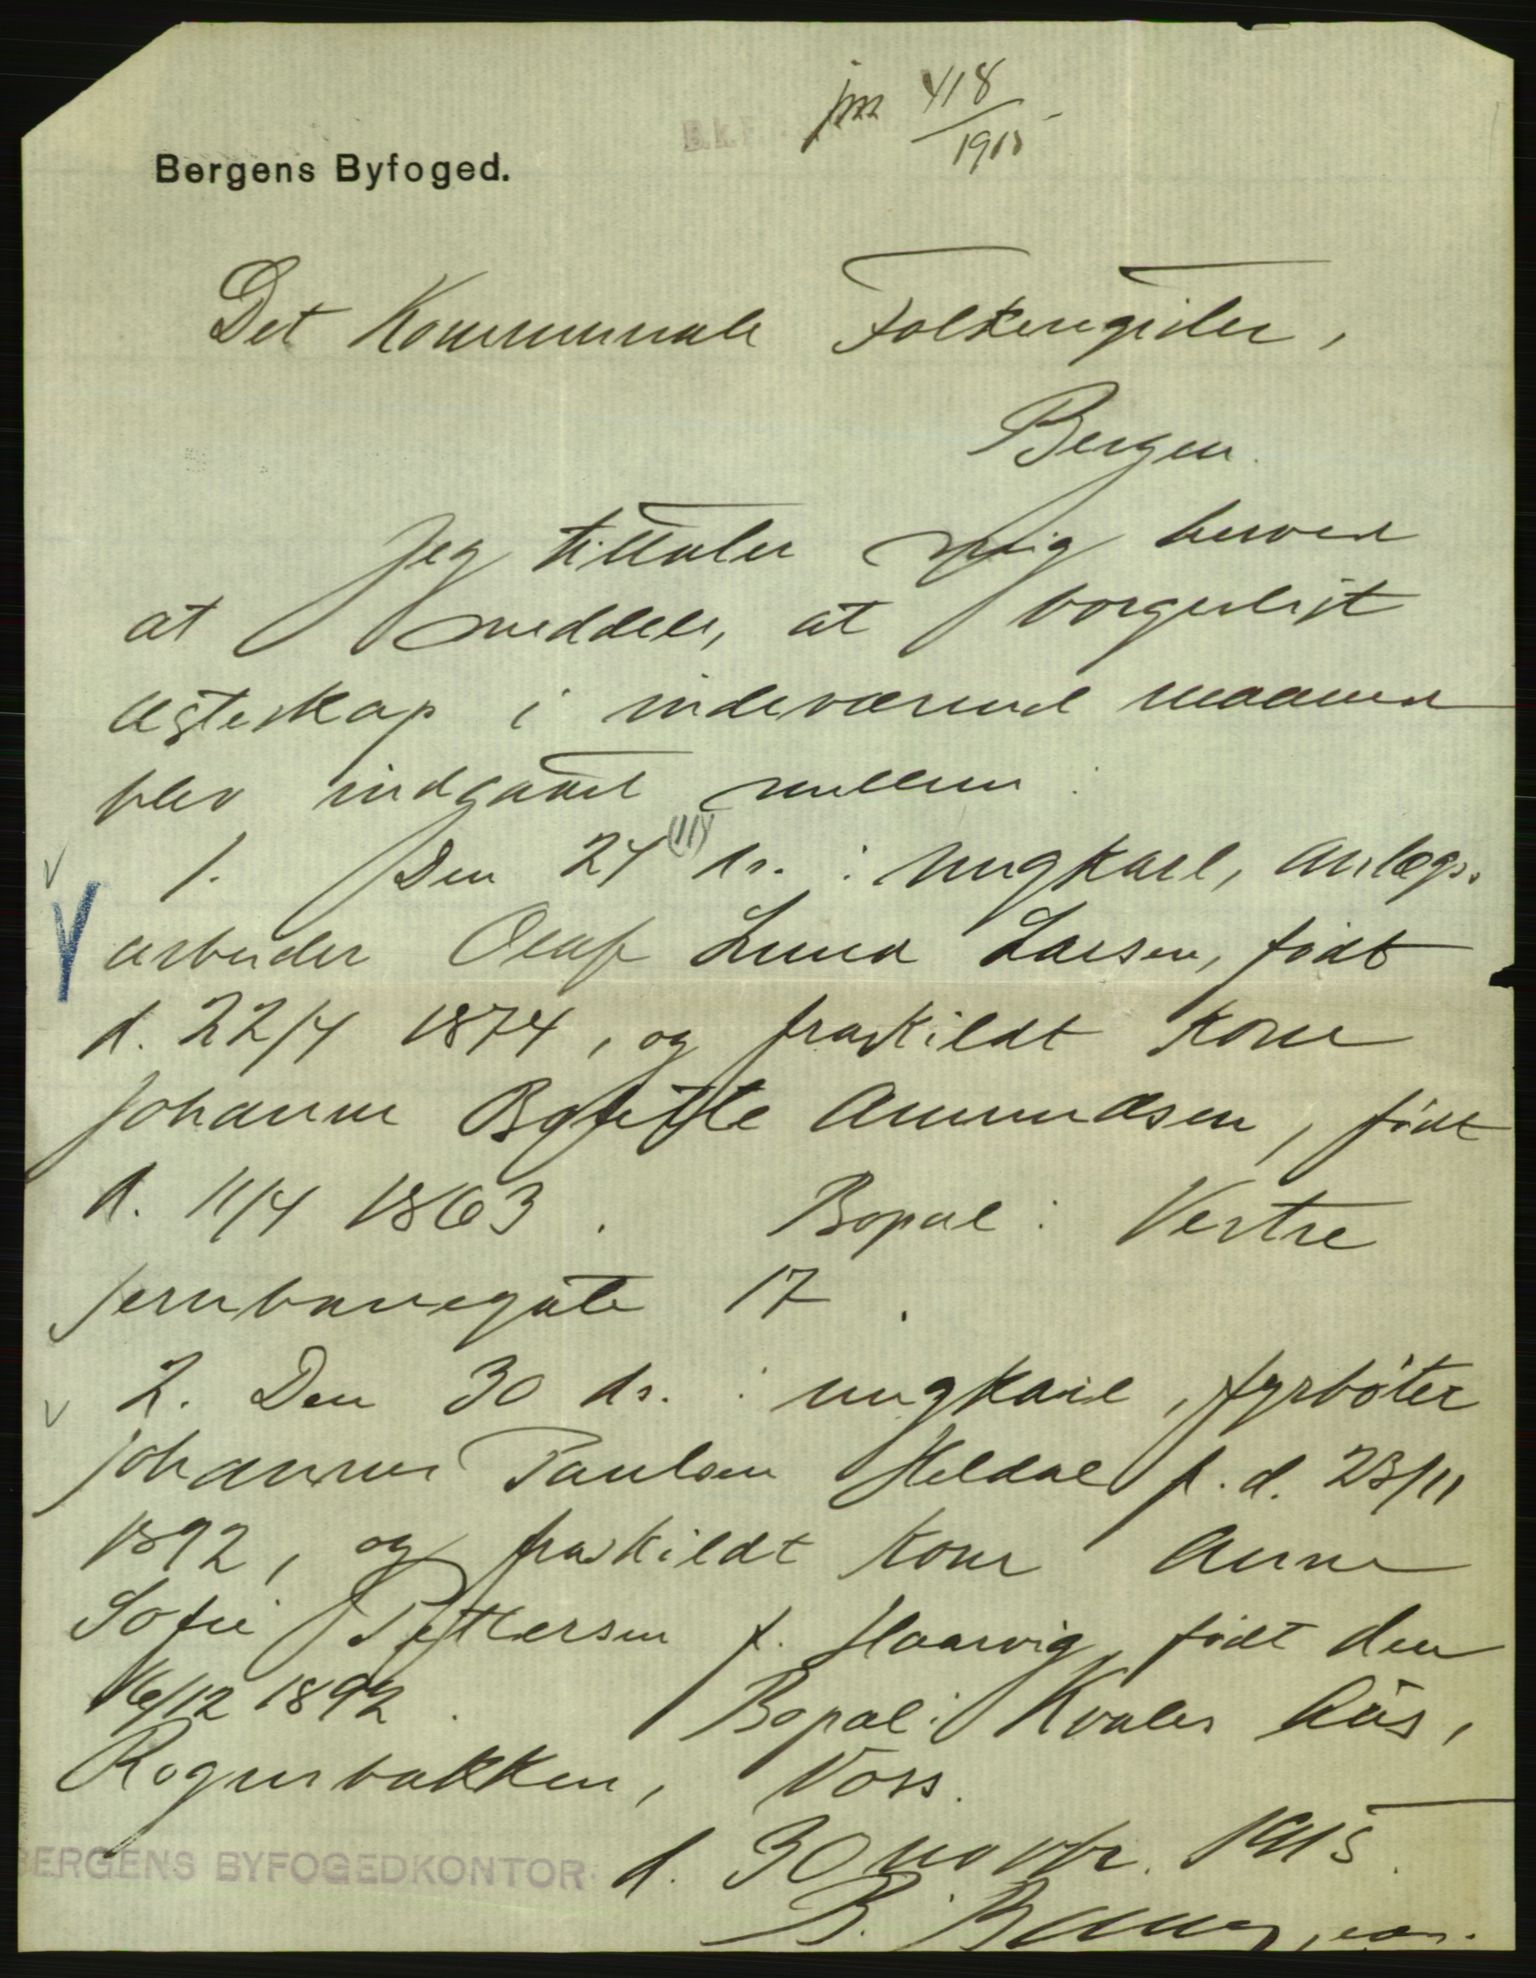 jnr 418/1915
Bergens Byfoged.
Det Kommunale Folkeregister,
Bergen.
Jeg tillater mig herved
at meddele, at borgerlig
egteskap i indeværende maaned
blev indgaat mellem:
1. Den 24 (11) ds.: ungkarl, anlægs-
arbeider Olaf Lund Larsen, født
d. 22/4 1874, og fraskildt kone
Johanne Amundsen, født
d. 11/4 1863. Bopæl: Vestre
Jernbanegate 17.
2. Den 30 ds.: ungkarl, fyrbøter
Johannes Paulsen Heldal f. d. 23/11
1892, og fraskildt kone Anne
Sofie Pettersen f. Haarvig, født den
16/12 1892. Bopæl: Kvales hus,
Rognsbakken, Voss.
d. 30 novbr. 1915.
BERGENS BYFOGEDKONTOR
B.